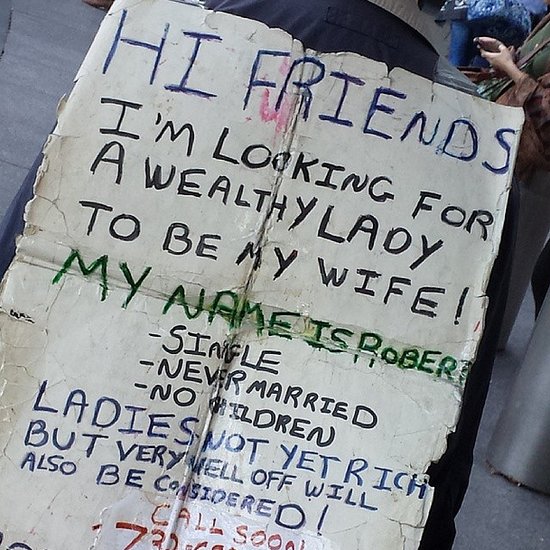 HI FRIENDS
I'M LOOKING FOR
A WEALTHY LADY
TO BE MY WIFE!
MY NAME IS ROBERT
-SINGLE
-NEVER MARRIED
-NO CHILDREN
LADIES NOT YET RICH
BUT VERY WELL OFF WILL
ALSO BE CONSIDERED!
CALL SOON